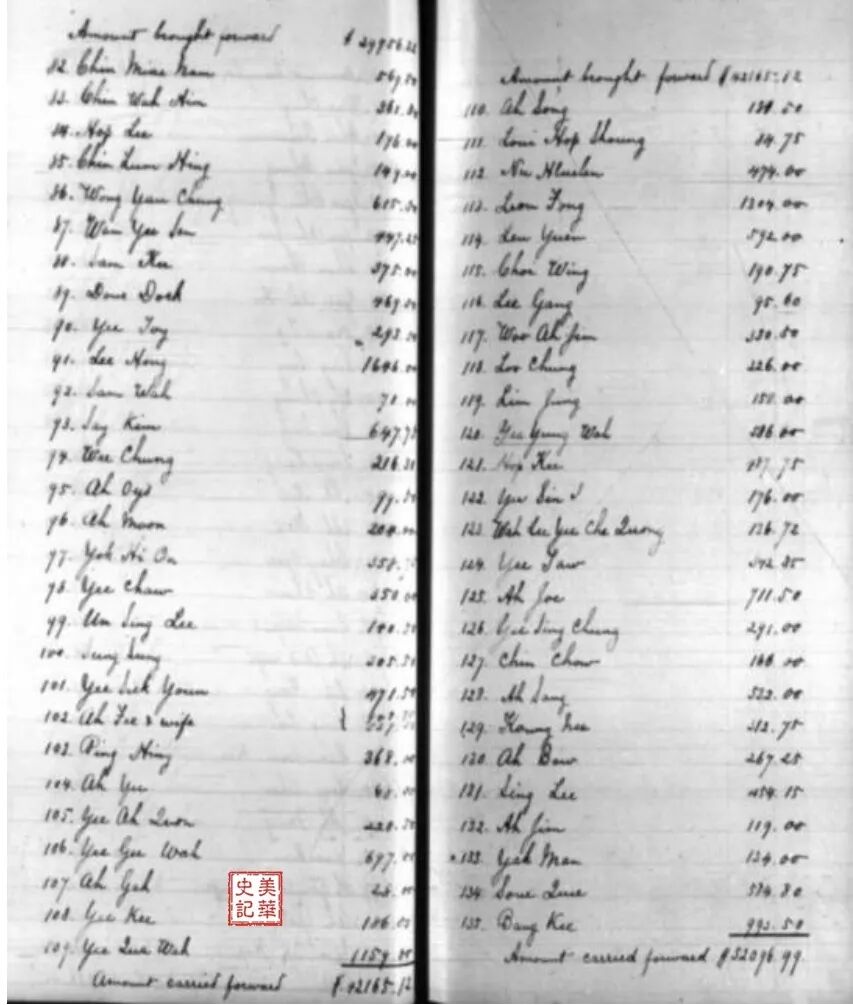 Amount brought forward $ 29956.22
82. Chin Mine Nam 569.50
83. Chin Wah Hin 361.
84. Hop Lee 176.00
85. Chin Lum Hing 149.00
86. Wong Yan Chung 615.00
87. Win Yee Sen 447.25
88. Sam Kee 375.00
89. Dong Dock 469.00
90. Yee Toy 293.00
91. Lee Hong 1646.00
92. Sam Wah 78.00
93. Say Kim 647.75
94. Wee Chung 216.
95. Ah Oye 99.50
96. Ah Moon 204.00
97. Yok Hi On 358.
98. Yee Chaw 250.00
99. Um Sing Lee 100.50
100. Sung Sung 205.50
101. Yee Sick Youn 471.50
102. Ah Fee & wife
103. Ping Hing 368.00
104. Ah Yu
105. Yee Ah Quon 220.50
106. Yee Gee Wah 677.00
107. Ah Gah
108. Yee Kee 106.00
109. Yee Que Wah 1159.00
Amount carried forward $ 42165.12
美華
史記
Amount brought forward $42165.12
110. Ah Song 50
111. Loui Hop Shoung 84.75
112. 474.00
113. Leon Fong 1204.00
114. Leu Yuen 592.00
115. Choi Wing 190.75
116. Lee Gang 95.60
117. Woo Ah Jim 330.50
118. Loo Chung 226.00
119. Lim Jung 158.00
120. Yee Yung Wah 586.00
121. Hop Kee 187.75
122. Yee Sin 176.00
123. Wah Lee Yee Che Quong 126.72
124. Yee Taw 85
125. Ah Joe 711.50
126. Yee Sing Chung 291.00
127. Chin Chow 160.00
128. Ah Sang 522.00
129. Kwong 75
130. Ah Bow 267.25
131. Sing Lee 454.15
132. Ah Jim 119.00
133. Yak Man 134.00
134. Soue Que 584.80
135. Bang Kee 993.50
Amount carried forward $52096.99